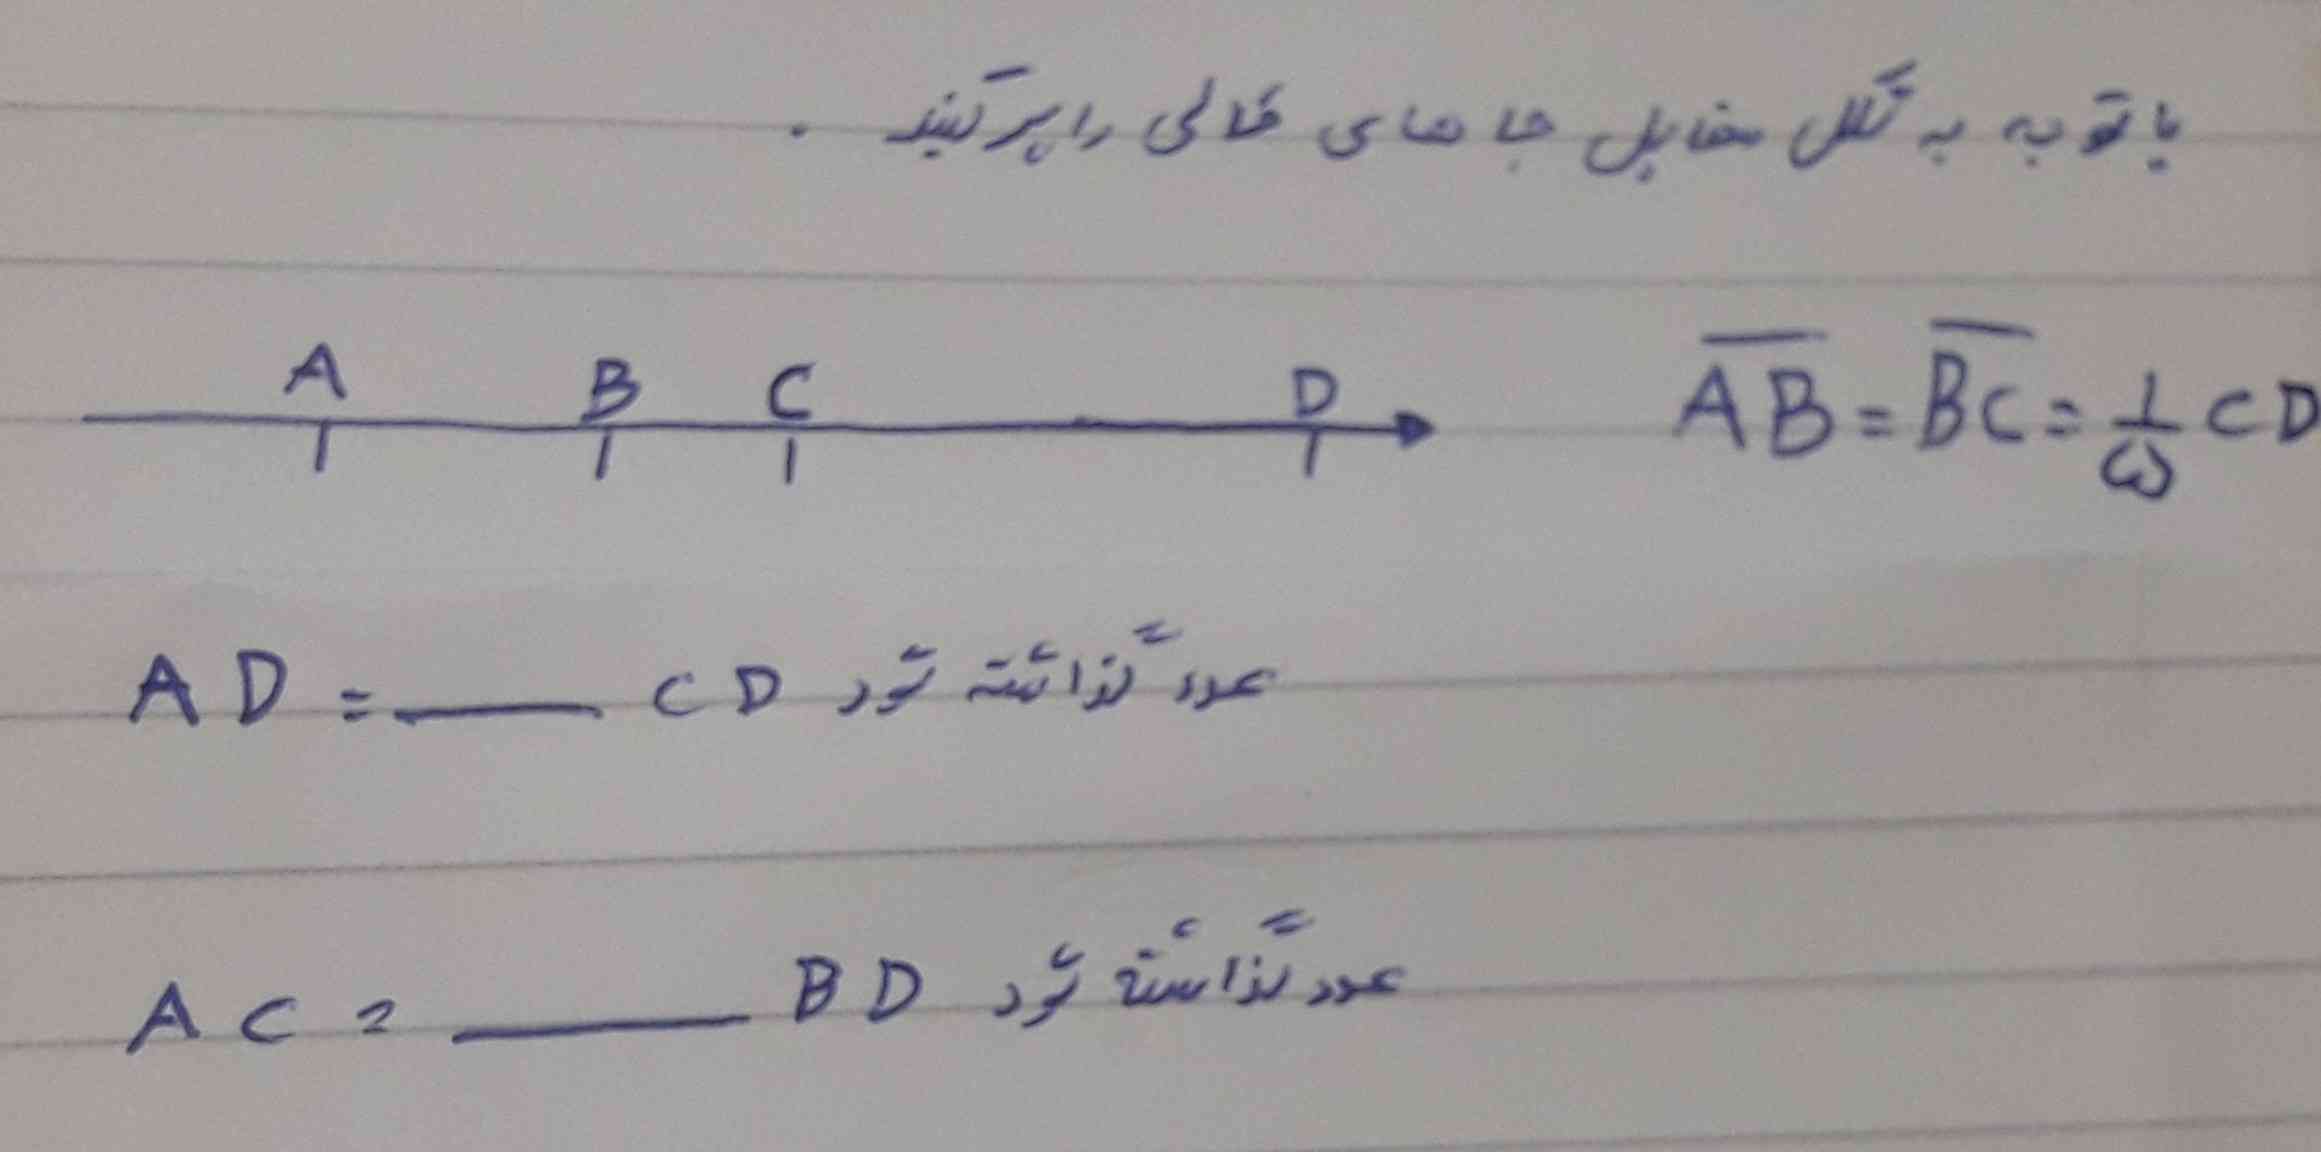 با توجه به شکل مقابل جا های خالی را پر کنید .
A B C D
AB = BC = ۱/۵ CD
AD = ____ CD عدد گذاشته شود
AC = ____ BD عدد گذاشته شود